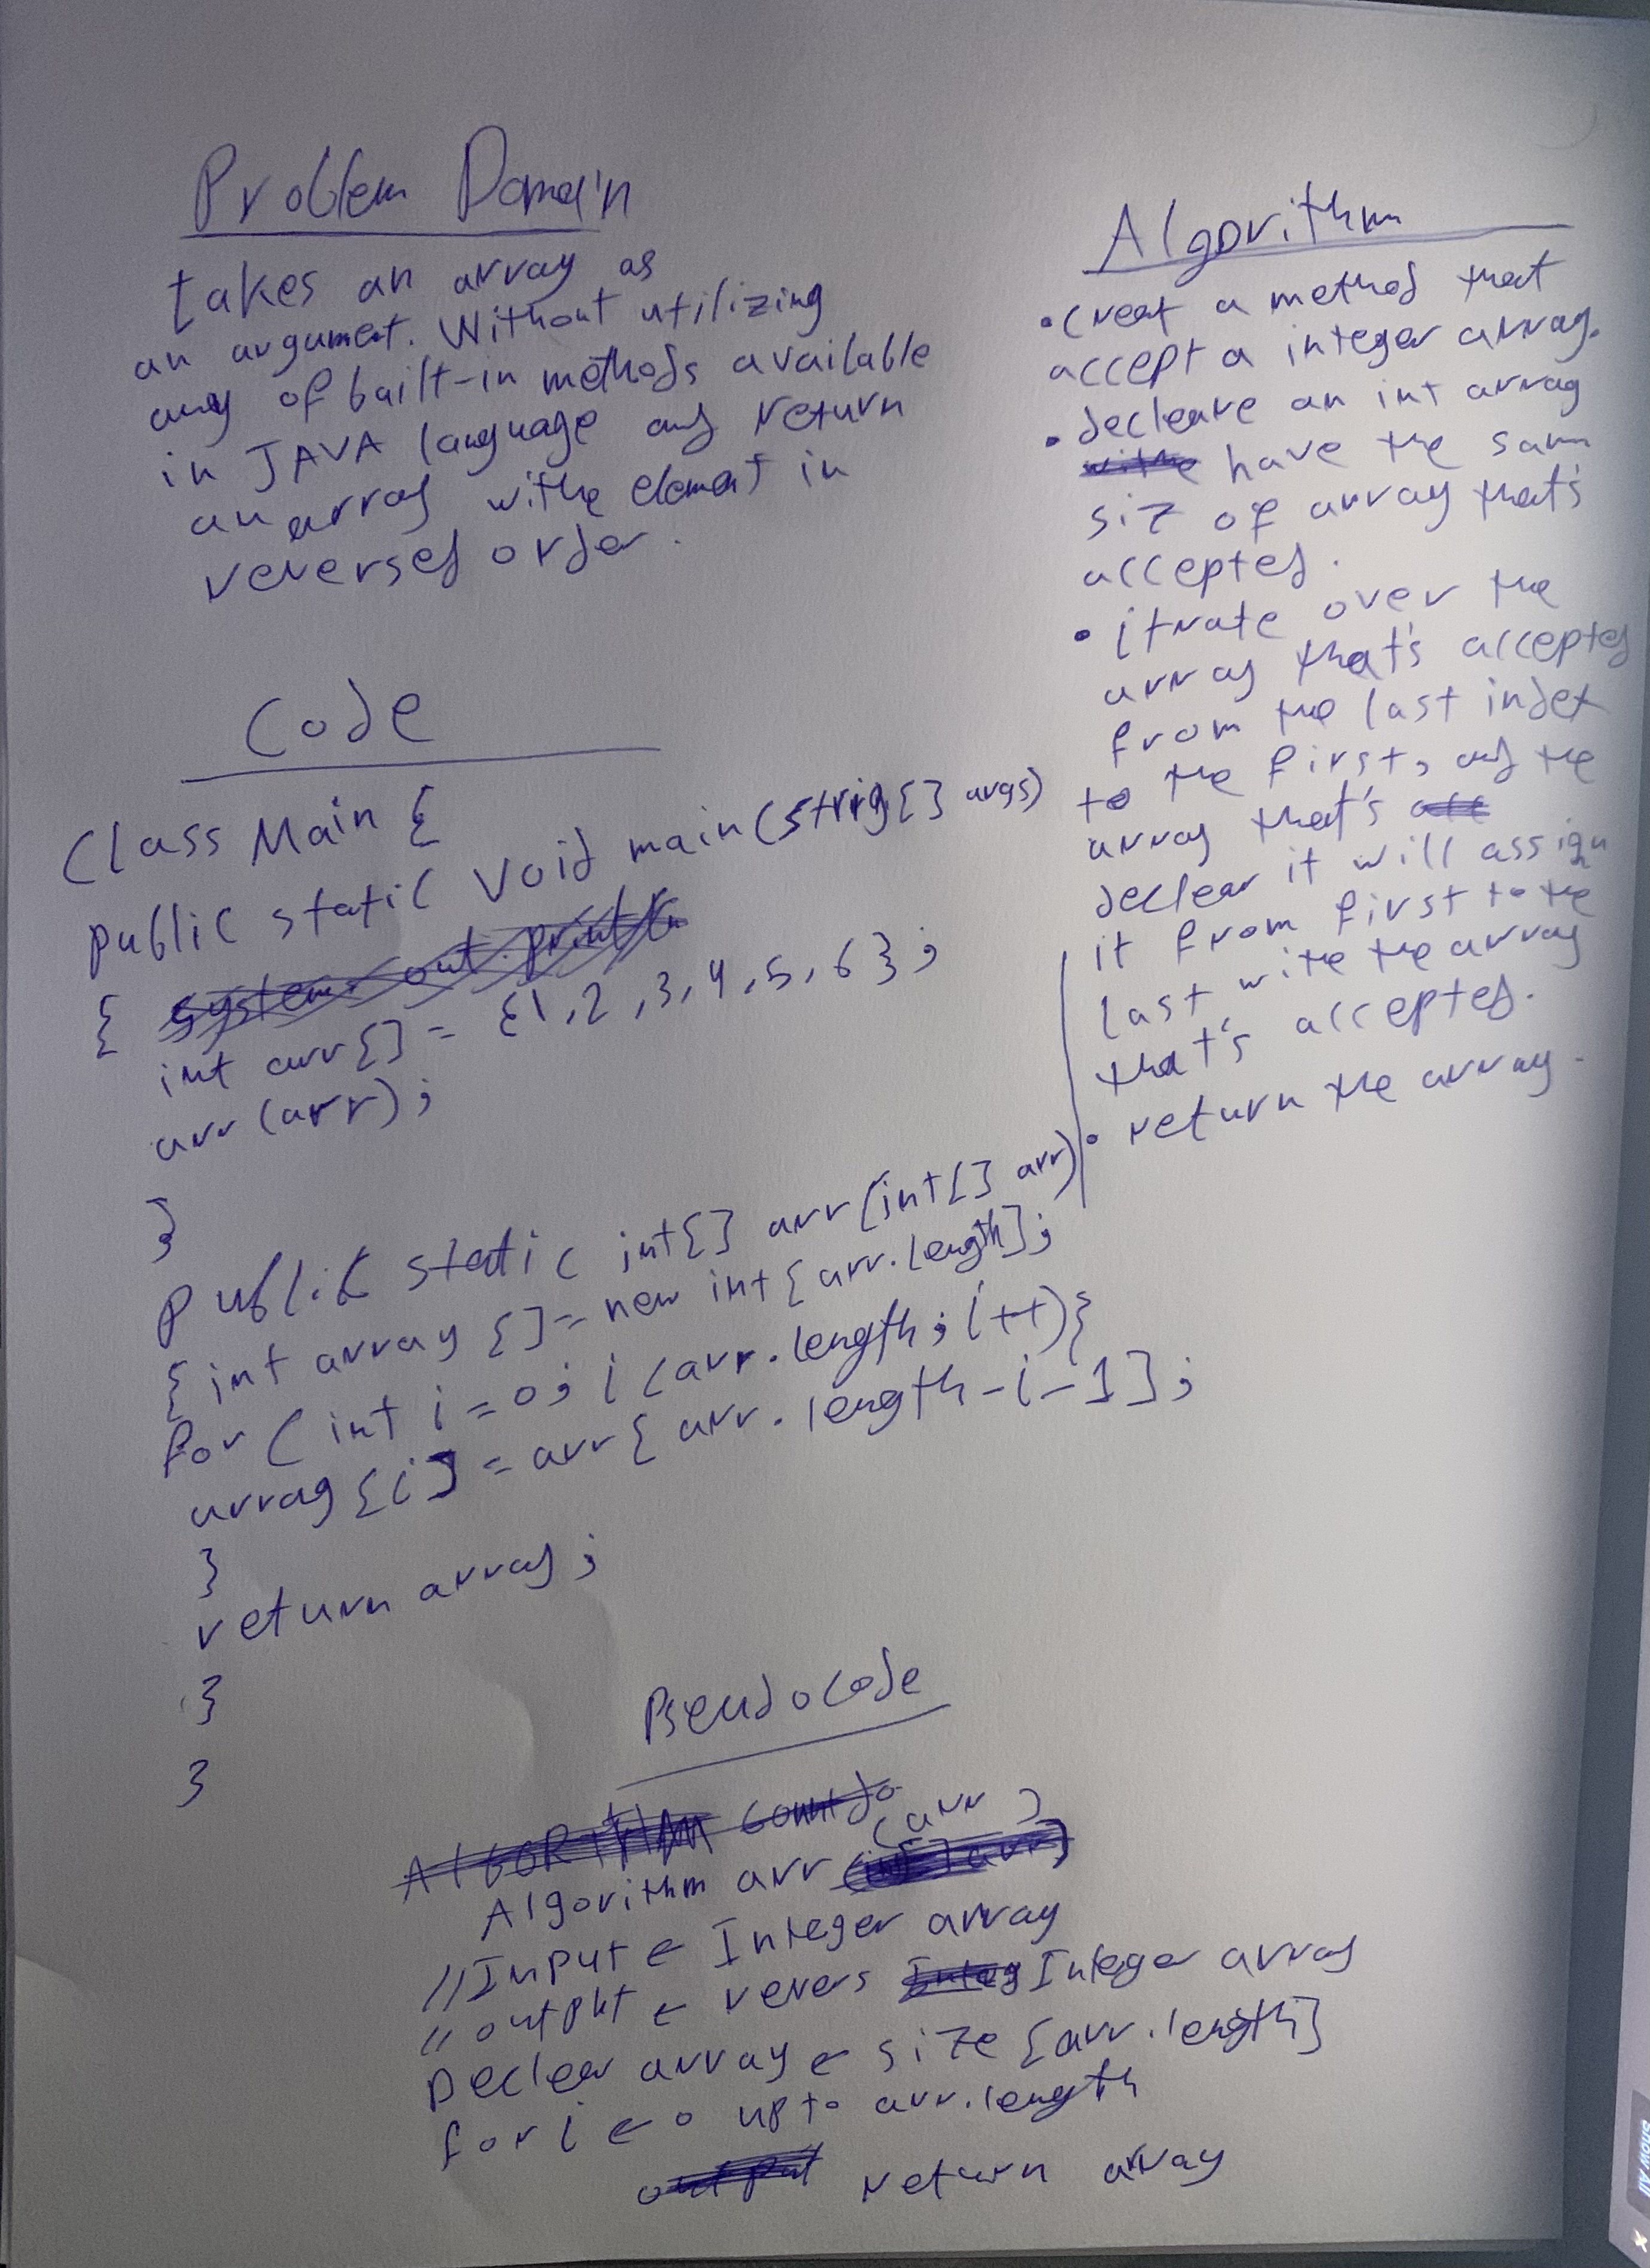 Problem Domain
takes an array as
an argument. Without utilizing
any of built-in methods available
in JAVA language and return
an array withe element in
reversed order.
Code
Class Main {
public static void main(strig[] args)
{
int arr[] = {1,2,3,4,5,6};
arr(arr);
}
public static int[] arr(int[] arr)
{ int array []= new int[arr.length];
for (int i=0; i<arr.length; i++){
array[i] = arr[arr.length-i-1];
}
return array;
}
}
Algorithm
• Creat a method that
accept a integer array.
• decleare an int array
have the sam
siz of array that's
accepted.
• itrate over the
array that's accepted
from the last index
to the first, and the
array that's
declear it will assign
it from first to the
last withe the array
that's accepted.
• return the array.
Pseudocode
Algorithm arr (arr)
//Input ← Integer array
// output ← revers Integer array
Declear array ← size [arr.length]
for i ← 0 upto arr.length
return array